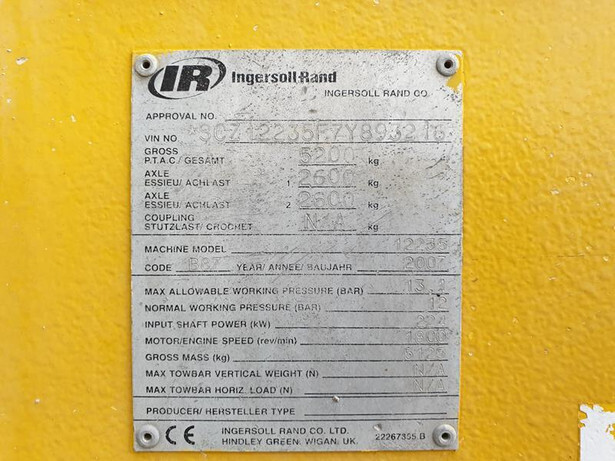 IR Ingersoll-Rand
INGERSOLL RAND CO.
APPROVAL NO.
VIN NO
GROSS
P.T.A.C./GESAMT 5200 kg
AXLE
ESSIEU/ACHLAST 1 2600 kg
AXLE
ESSIEU/ACHLAST 2 2600 kg
COUPLING
STUTZLAST/CROCHET N/A kg
MACHINE MODEL 12235
CODE YEAR/ANNEE/BAUJAHR 2007
MAX ALLOWABLE WORKING PRESSURE (BAR)
NORMAL WORKING PRESSURE (BAR) 12
INPUT SHAFT POWER (kW)
MOTOR/ENGINE SPEED (rev/min)
GROSS MASS (kg)
MAX TOWBAR VERTICAL WEIGHT (N) N/A
MAX TOWBAR HORIZ. LOAD (N) N/A
PRODUCER/HERSTELLER TYPE
CE INGERSOLL RAND CO. LTD.
HINDLEY GREEN, WIGAN, UK. 22267335 B